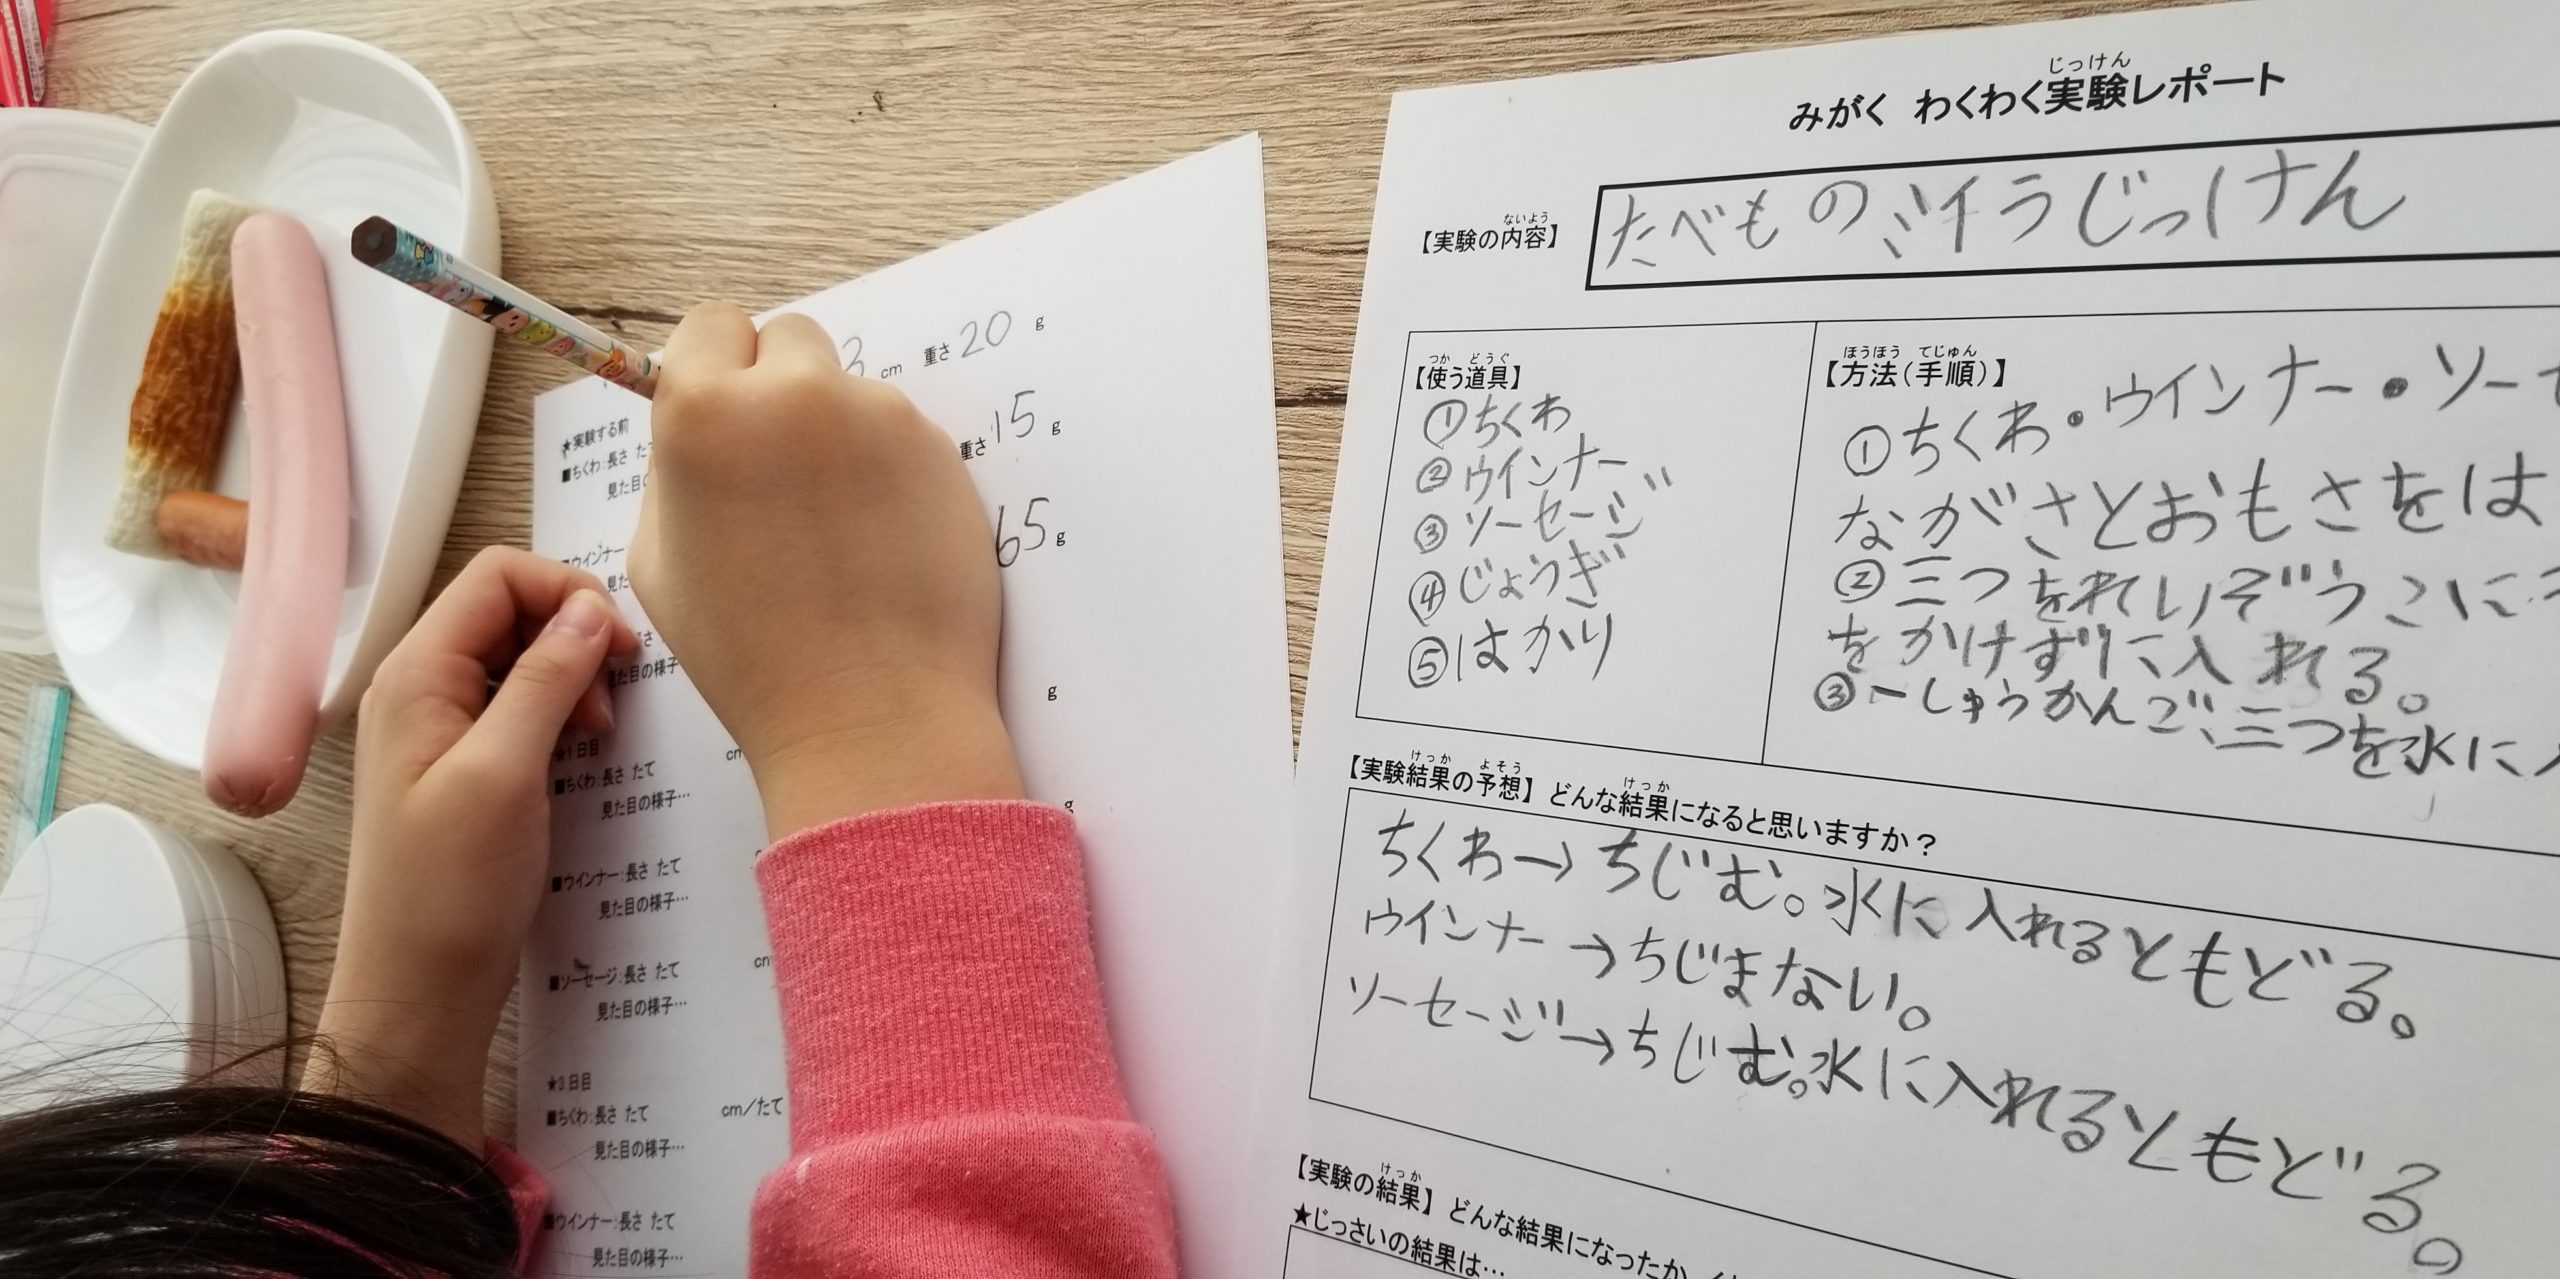 じっけん
みがく わくわく実験レポート
ないよう
【実験の内容】
たべものミイラじっけん
つか どうぐ
【使う道具】
①ちくわ
②ウインナー
③ソーセージ
④じょうぎ
⑤はかり
ほうほう てじゅん
【方法(手順)】
①ちくわ・ウインナー・ソーセ
ながさとおもさをは
②三つをれいぞうこに
をかけずに入れる。
③一しゅうかんご、三つを水に
けっか よそう けっか
【実験結果の予想】どんな結果になると思いますか?
ちくわ→ちじむ。水に入れるともどる。
ウインナー→ちじまない。
ソーセージ→ちじむ。水に入れるともどる。
けっか
【実験の結果】どんな結果になったか
★じっさいの結果は…
3 cm 重さ 20 g
★実験する前
■ちくわ:長さ たて
見た目の
重さ 15 g
ウインナー
見た
65 g
長さ
見た目の様子
g
★1日目
■ちくわ:長さ たて cm
見た目の様子… g
■ウインナー:長さ たて
見た目の様子…
■ソーセージ:長さ たて
見た目の様子…
★3日目
■ちくわ:長さ たて cm/たて
見た目の様子…
■ウインナー:長さ たて
見た目の様子…